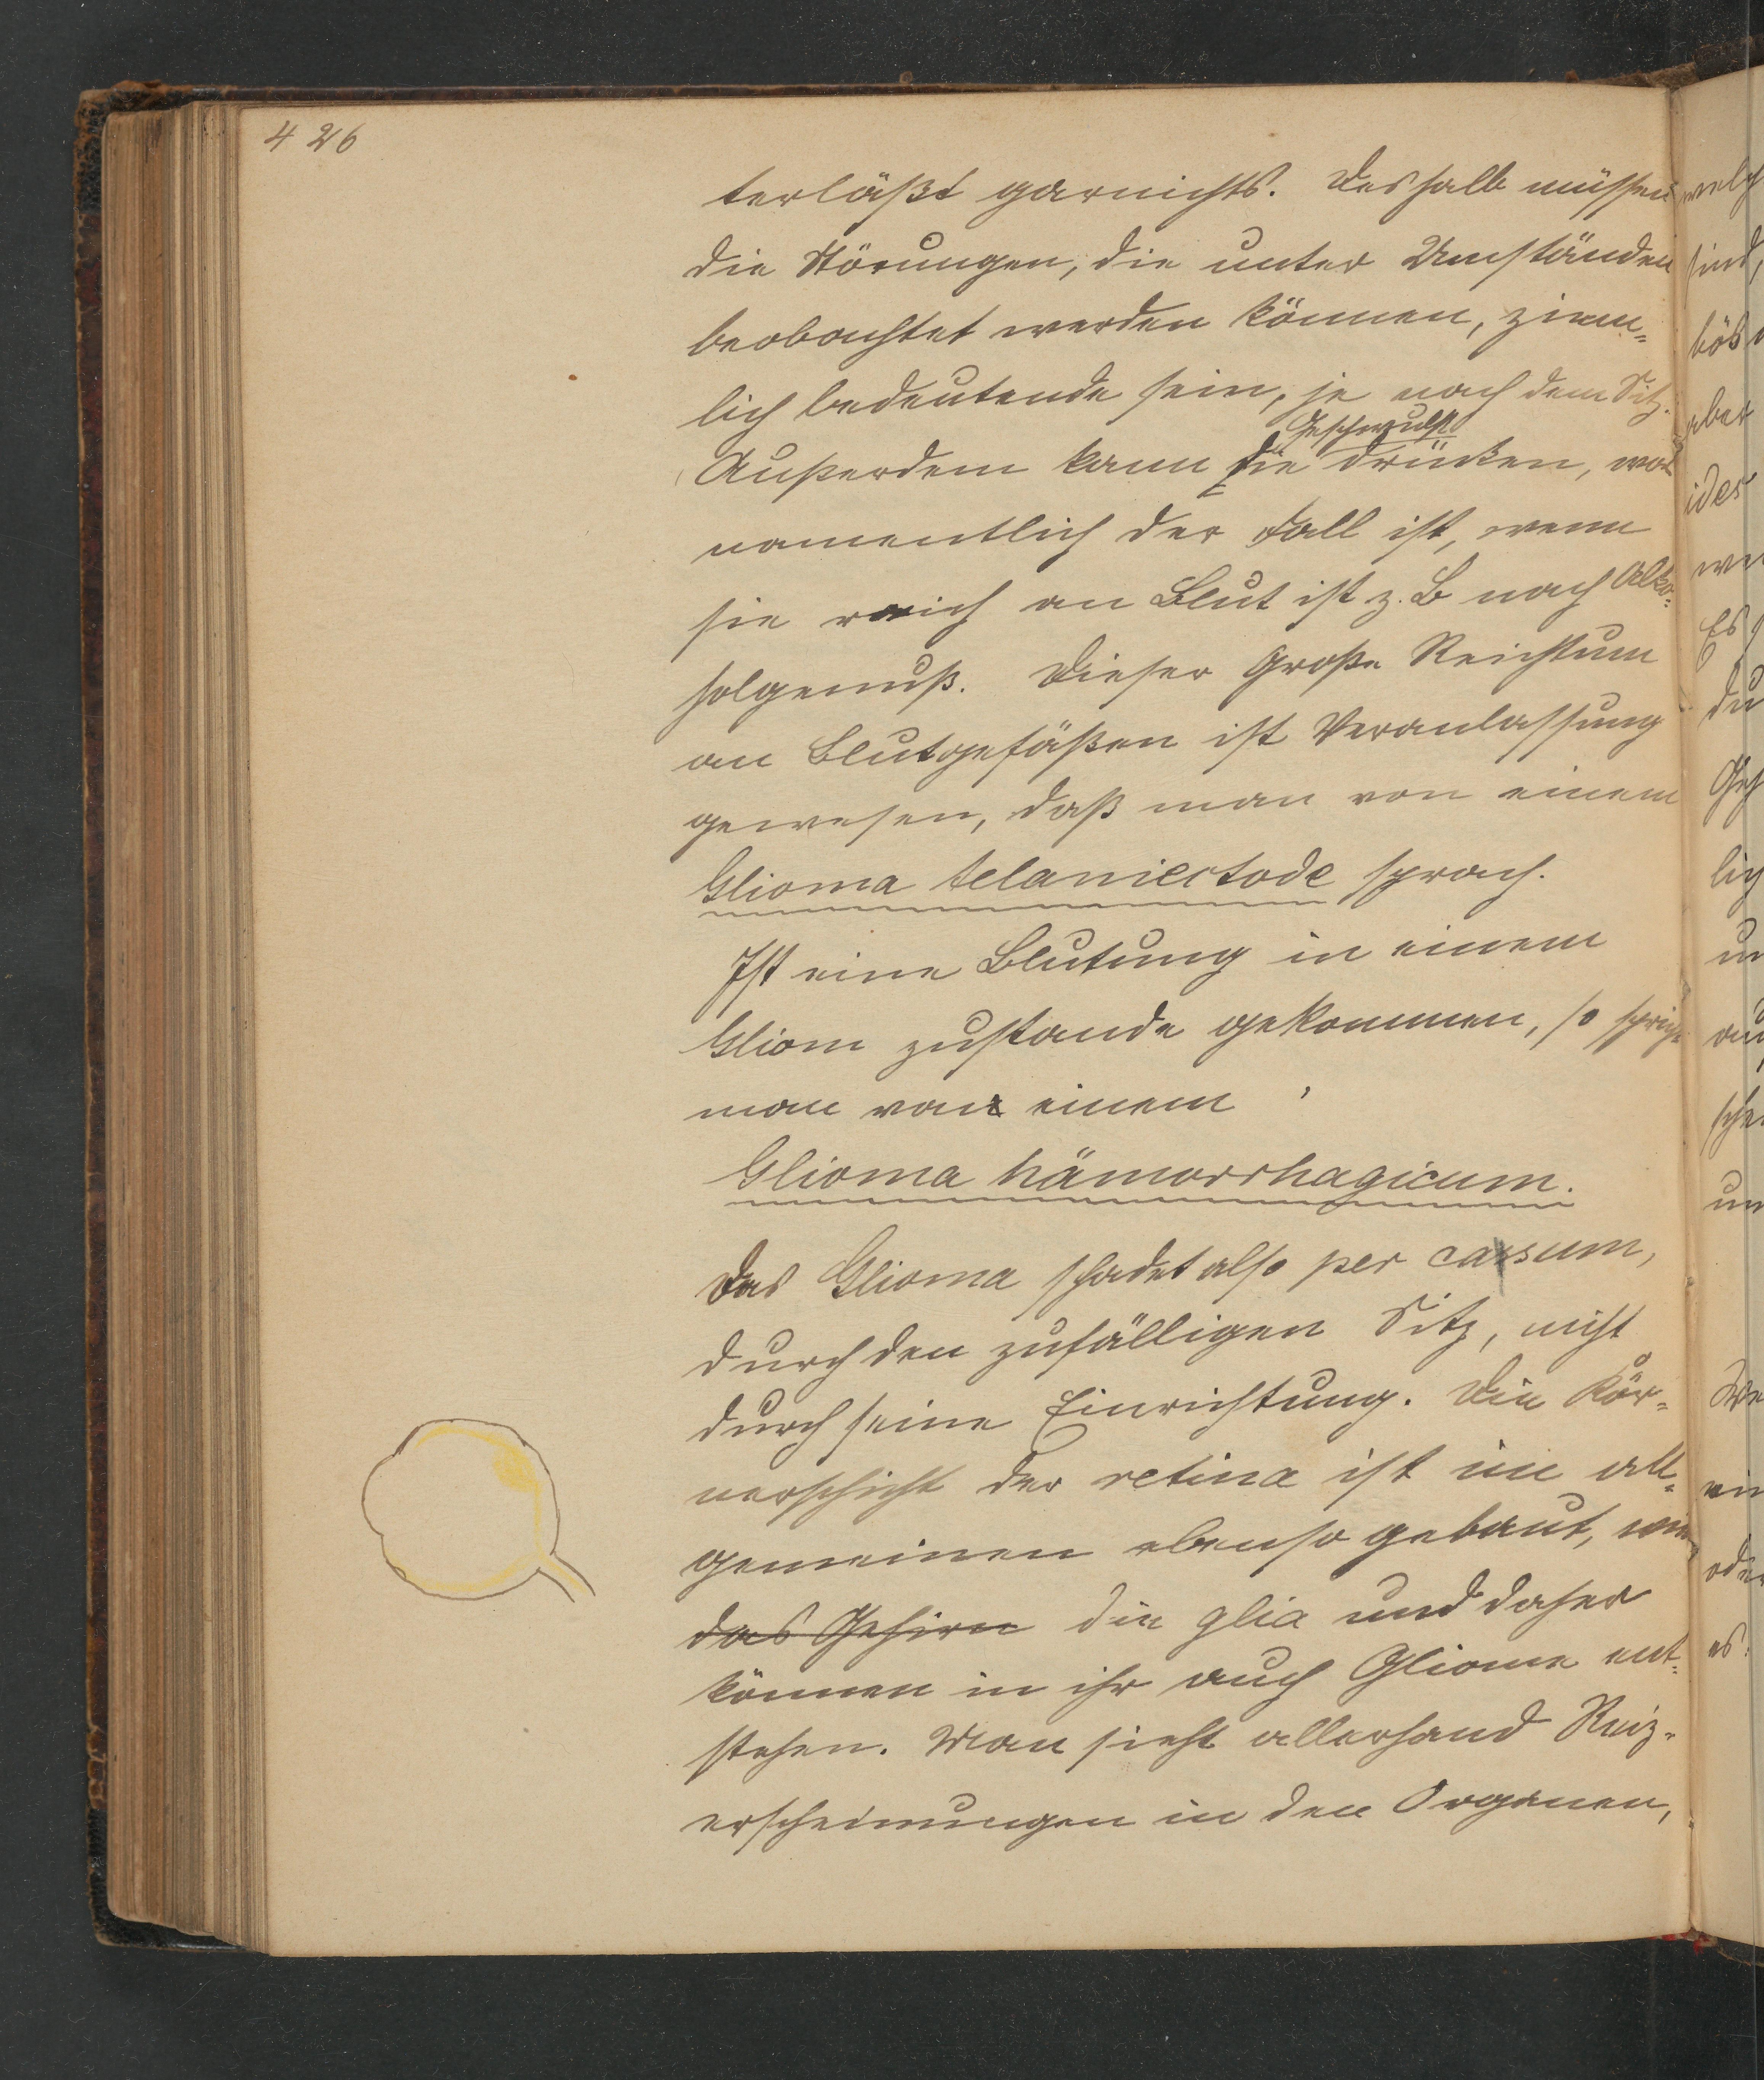 426
terläßt garnichts. Deshalb müssen
die Störungen, die unter Umständen
beobachtet werden können, ziem-
lich bedeutende sein, je nach dem Sitz.
Geschwulst
Außerdem kann die drücken, was
namentlich der Fall ist, wenn
sie reich an Blut ist z. B nach Alko-
holgenuß. Dieser große Reichtum
an Blutgefäßen ist Veranlassung
gewesen, daß man von einem
Glioma telaniectode sprach.
Ist eine Blutung in einem
Gliom zustande gekommen, so spricht
man von einem
Glioma hämorrhagicum.
Das Glioma schadet also per casum,
durch den zufälligen Sitz, nicht
durch seine Einrichtung. Die Kör-
nerschicht der retina ist im all-
gemeinen ebenso gebaut, wie
das Gehirn die glia und daher
können in ihr auch Gliome ent-
stehen. Man sieht allerhand Reiz-
erscheinungen in den Organen,
welch
sind,
bös
aber
ider
we
Es
du
Ges
lich
un
au
sche
un
We
ein
oder
es